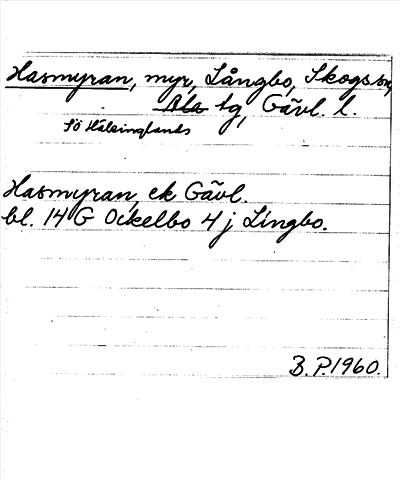 Hasmyran, myr, Långbo, Skogs sn,
Ala tg, Gävl. l.
Sö Hälsinglands
Hasmyran, ek Gävl.
bl. 14 G Ockelbo 4 j Lingbo.
B.P. 1960.